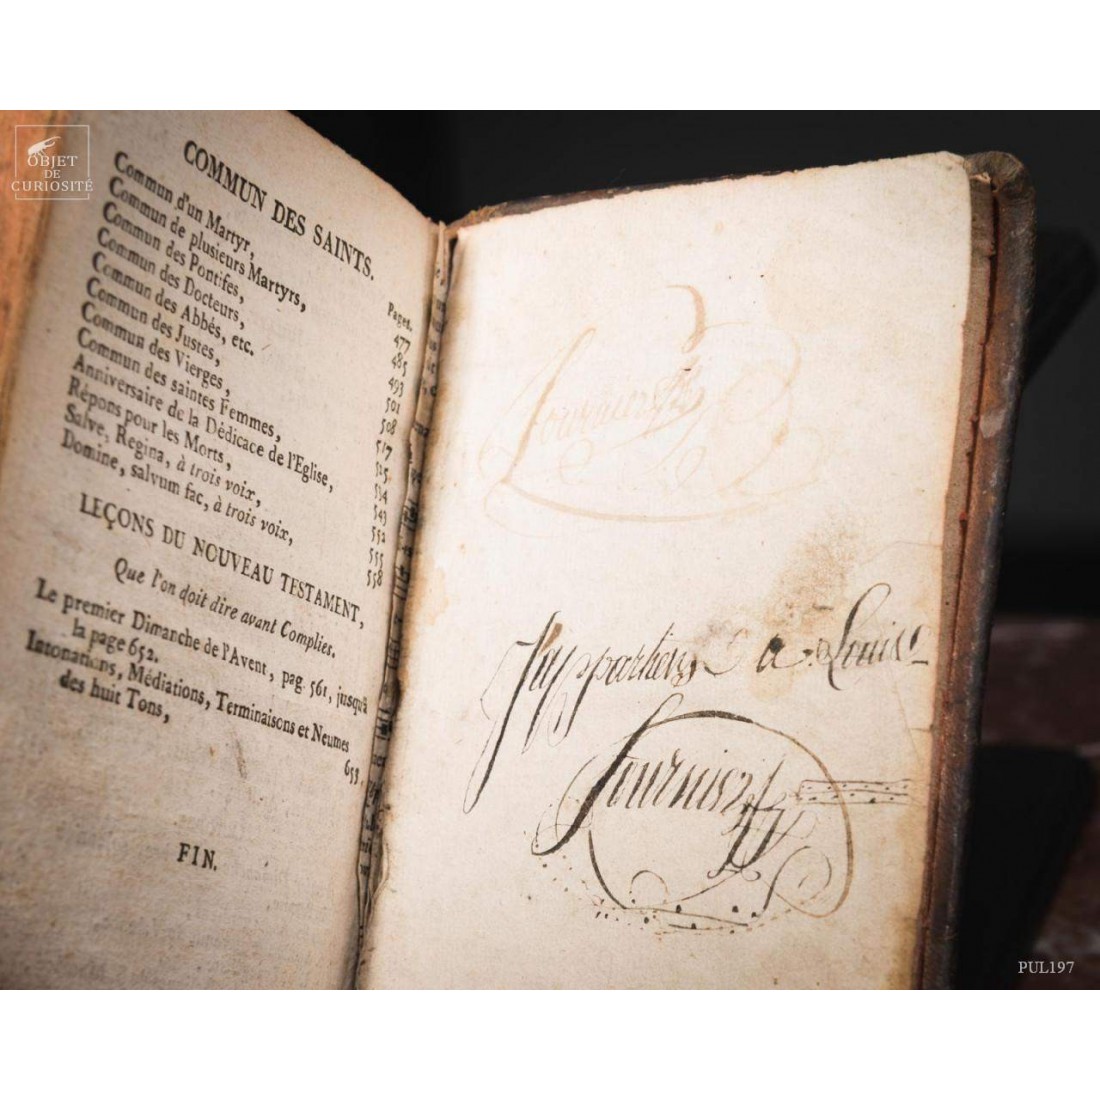 OBJET
DE
CURIOSITÉ
COMMUN DES SAINTS.
Pages.
Commun d'un Martyr, 477
Commun de plusieurs Martyrs, 485
Commun des Pontifes, 493
Commun des Docteurs, 501
Commun des Abbés, etc. 508
Commun des Justes, 517
Commun des Vierges, 525
Commun des saintes Femmes, 534
Anniversaire de la Dédicace de l'Eglise, 543
Répons pour les Morts, 552
Salve, Regina, à trois voix, 555
Domine, salvum fac, à trois voix, 558
LEÇONS DU NOUVEAU TESTAMENT,
Que l'on doit dire avant Complies.
Le premier Dimanche de l'Avent, pag. 561, jusqu'à
la page 652.
Intonations, Médiations, Terminaisons et Neumes
des huit Tons, 653.
FIN.
J'appartiens a Louise
fournier
PUL197